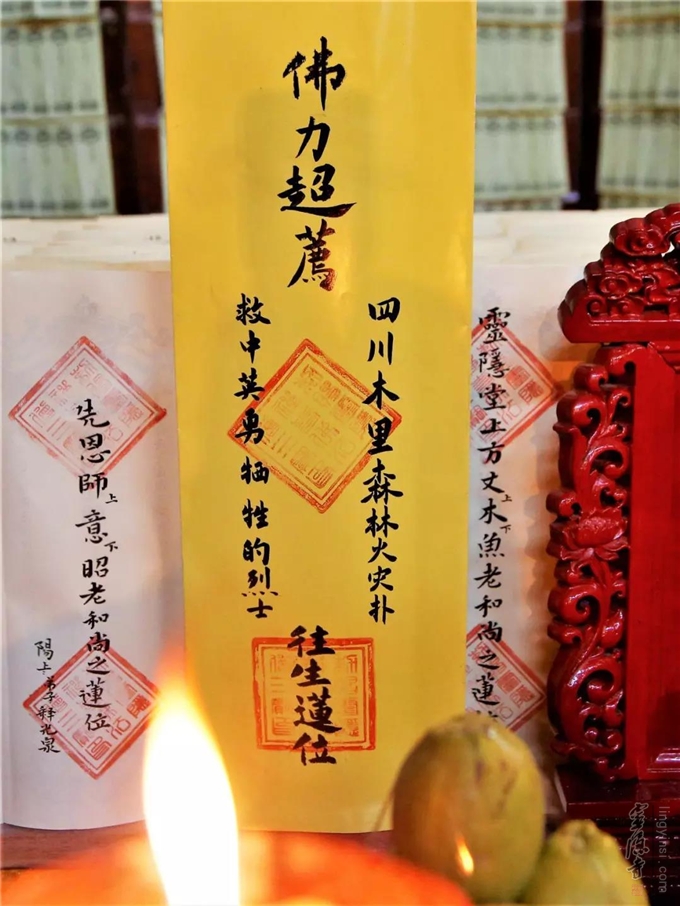 佛力超薦
四川木里森林火灾扑
救中英勇牺牲的烈士
往生蓮位
靈隱堂上方丈上木下魚老和尚之蓮
先恩師上意下昭老和尚之蓮位
陽上弟子釋光泉
靈隱寺
lingyinsi.com